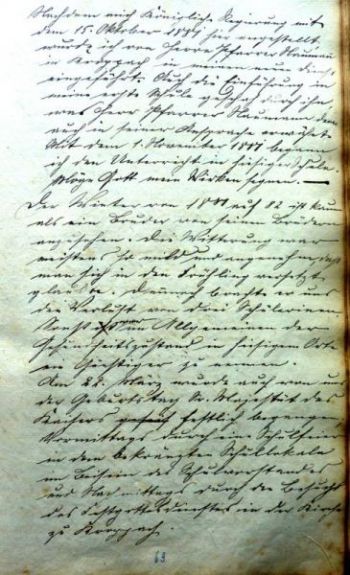 Nachdem mich Königliche Regierung mit
dem 15. Oktober 1881 hier angestellt
wurde ich von Herrn Pfarrer Naumann
in Kroppach in meinen neuen Dienst
eingeführt. Auch die Einführung in
meine erste Schule geschah durch ihn,
was Herr Pfarrer Naumann denn
auch in seiner Ansprache erwähnte.
Mit dem 1. November 1881 begann
ich den Unterricht in hiesiger Schule.
Möge Gott mein Wirken segnen. —
Der Winter von 1881 auf 82 ist kaum
als ein Bruder von seinen Brüdern
anzusehen. Die Witterung war
meistens so mild und angenehm, daß
man sich in den Frühling versetzt
glaubte. Dennoch brachte er uns
den Verlust von drei Schülerinnen
Sonst im Allgemeinen der
Gesundheitszustand in hiesigem Orte
ein günstiger zu nennen.
Am 22. März wurde auch von uns
der Geburtstag Sr. Majestät des
Kaisers festlich begangen
Vormittags durch eine Schulfeier
in dem bekränzten Schullokale
im Beisein des Schulvorstandes
und Nachmittags durch den Besuch
des Festgottesdienstes in der Kirche
zu Kroppach.
63